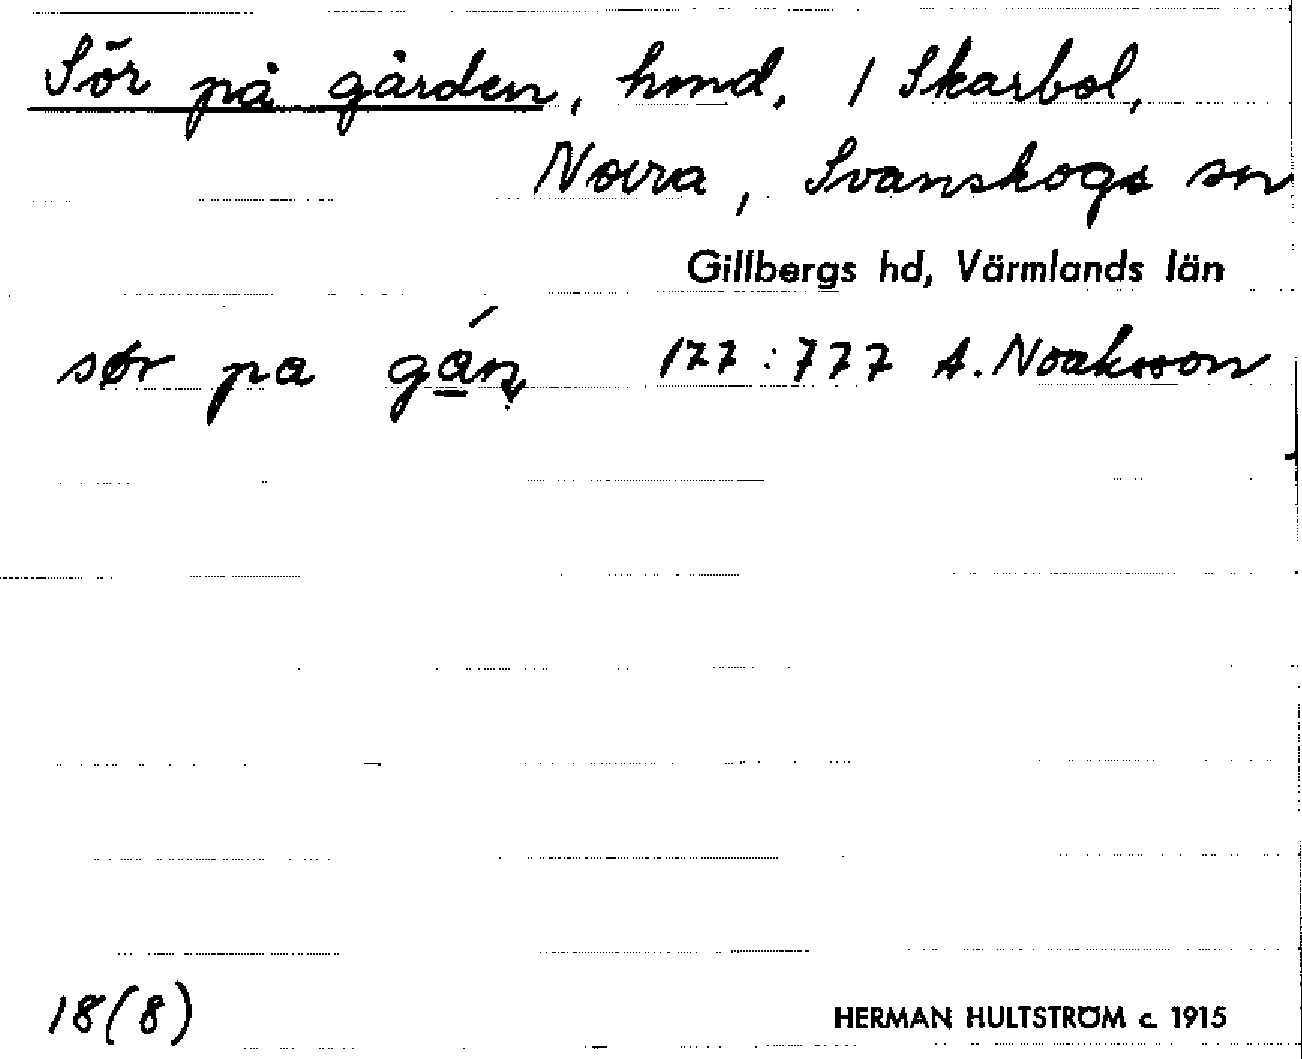 Sör på gården, hmd. 1 Skarbol,
Norra, Svanskogs sn
Gillbergs hd, Värmlands län
sør pa gán 177:777 A. Noaksson
18(8) HERMAN HULTSTRÖM c. 1915